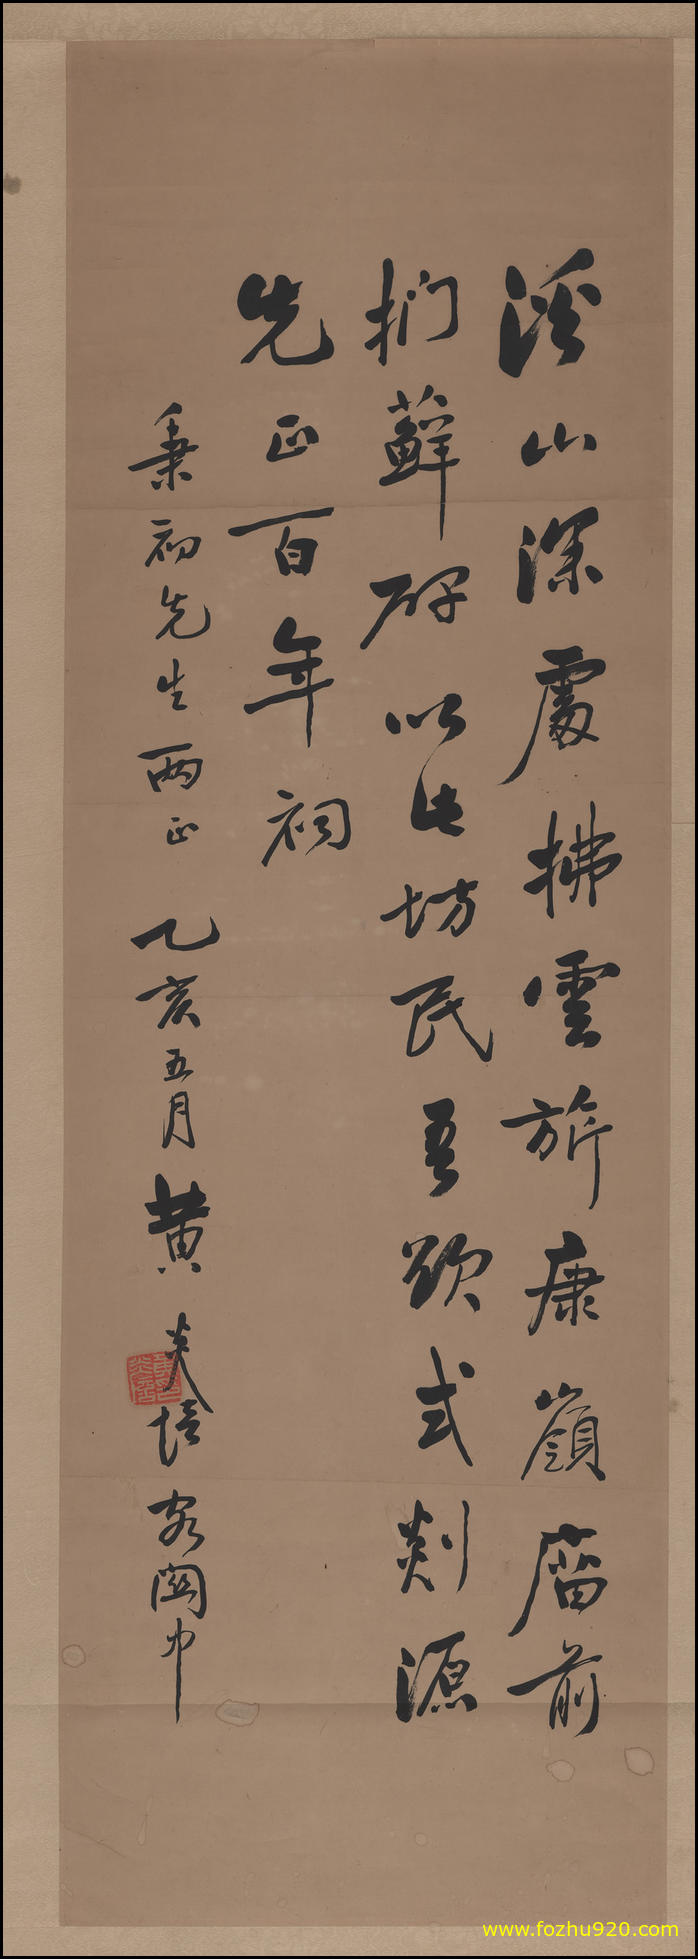 溪山深處拂雲旂康嶺庿前
捫蘚碑以此坊民吾欲式剡源
先正百年祠
秉初先生兩正 乙亥五月黃炎培客關中
www.fozhu920.com